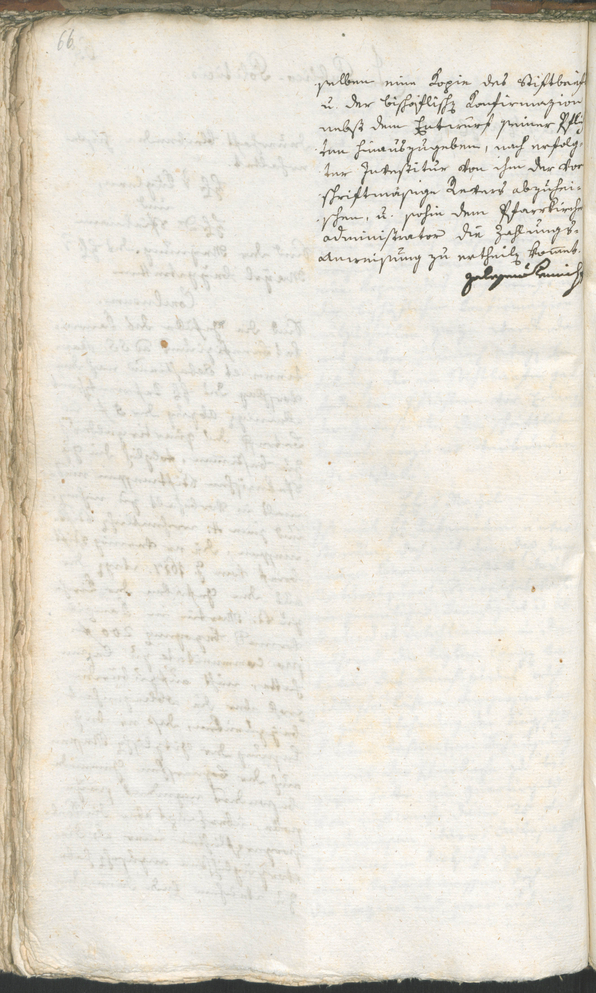 66.
selben eine Kopie des Stiftbrifs
u. der bischöflichen Konfirmazion
nebst dem Entwurf seiner Pflich
ten hinauszugeben, nach erfolg-
ter Investitur von ihm der vor
schriftmäsige Revers abzuhei-
schen, u. sohin dem Pfarrkirche
administrator die Zahlungs-
anweisung zu ertheilen kommt.